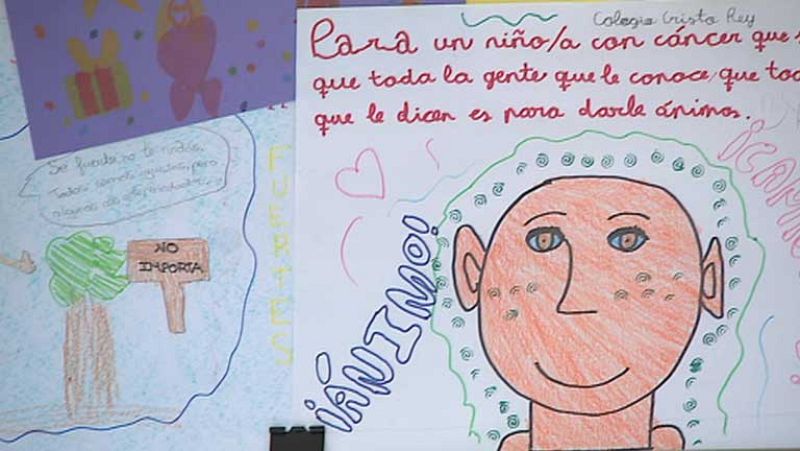 Colegio Cristo Rey
Para un niño/a con cáncer que
que toda la gente que le conoce, que
que le dicen es para darle ánimos.
Todos somos iguales, pero
NO
IMPORTA
FUERTES
¡ÁNIMO!